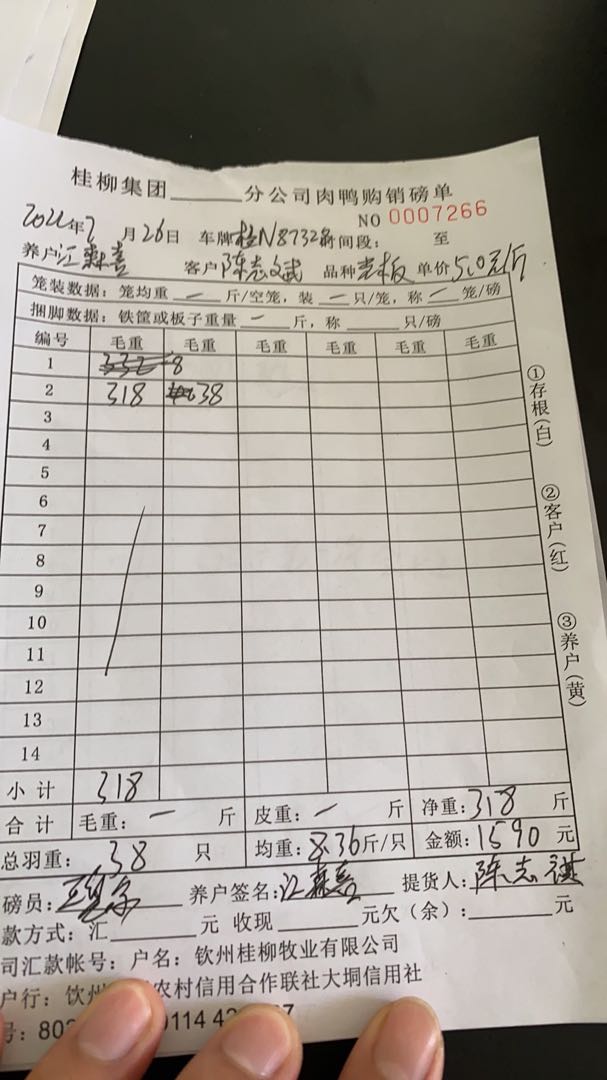 桂柳集团______分公司肉鸭购销磅单
NO 0007266
2022年2月26日 车牌桂N8732 时间段: 至
养户江森喜 客户陈志斌 品种 板 单价5.0元/斤
笼装数据: 笼均重 — 斤/空笼, 装 — 只/笼, 称 — 笼/磅
捆脚数据: 铁筐或板子重量 — 斤, 称 只/磅
编号 毛重 毛重 毛重 毛重 毛重 毛重
1 8
2 318 38
3
4
5
6
7
8
9
10
11
12
13
14
小计 318
合计 毛重: — 斤 皮重: — 斤 净重: 318 斤
总羽重: 38 只 均重: 8.36斤/只 金额: 1590 元
磅员: 养户签名: 江森喜 提货人: 陈志斌
款方式: 汇______元 收现______元欠(余):______元
司汇款帐号: 户名: 钦州桂柳牧业有限公司
户行: 钦州 农村信用合作联社大垌信用社
号: 80 0114 4
①存根(白)
②客户(红)
③养户(黄)